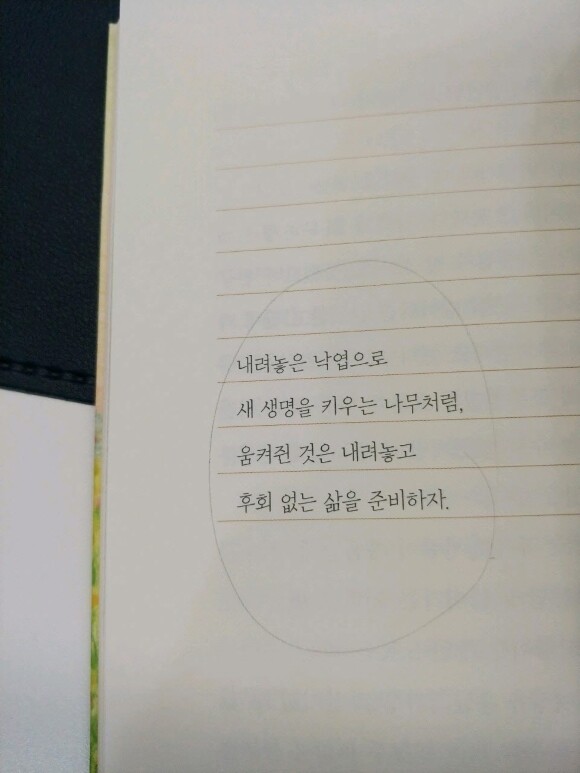 내려놓은 낙엽으로
새 생명을 키우는 나무처럼,
움켜쥔 것은 내려놓고
후회 없는 삶을 준비하자.